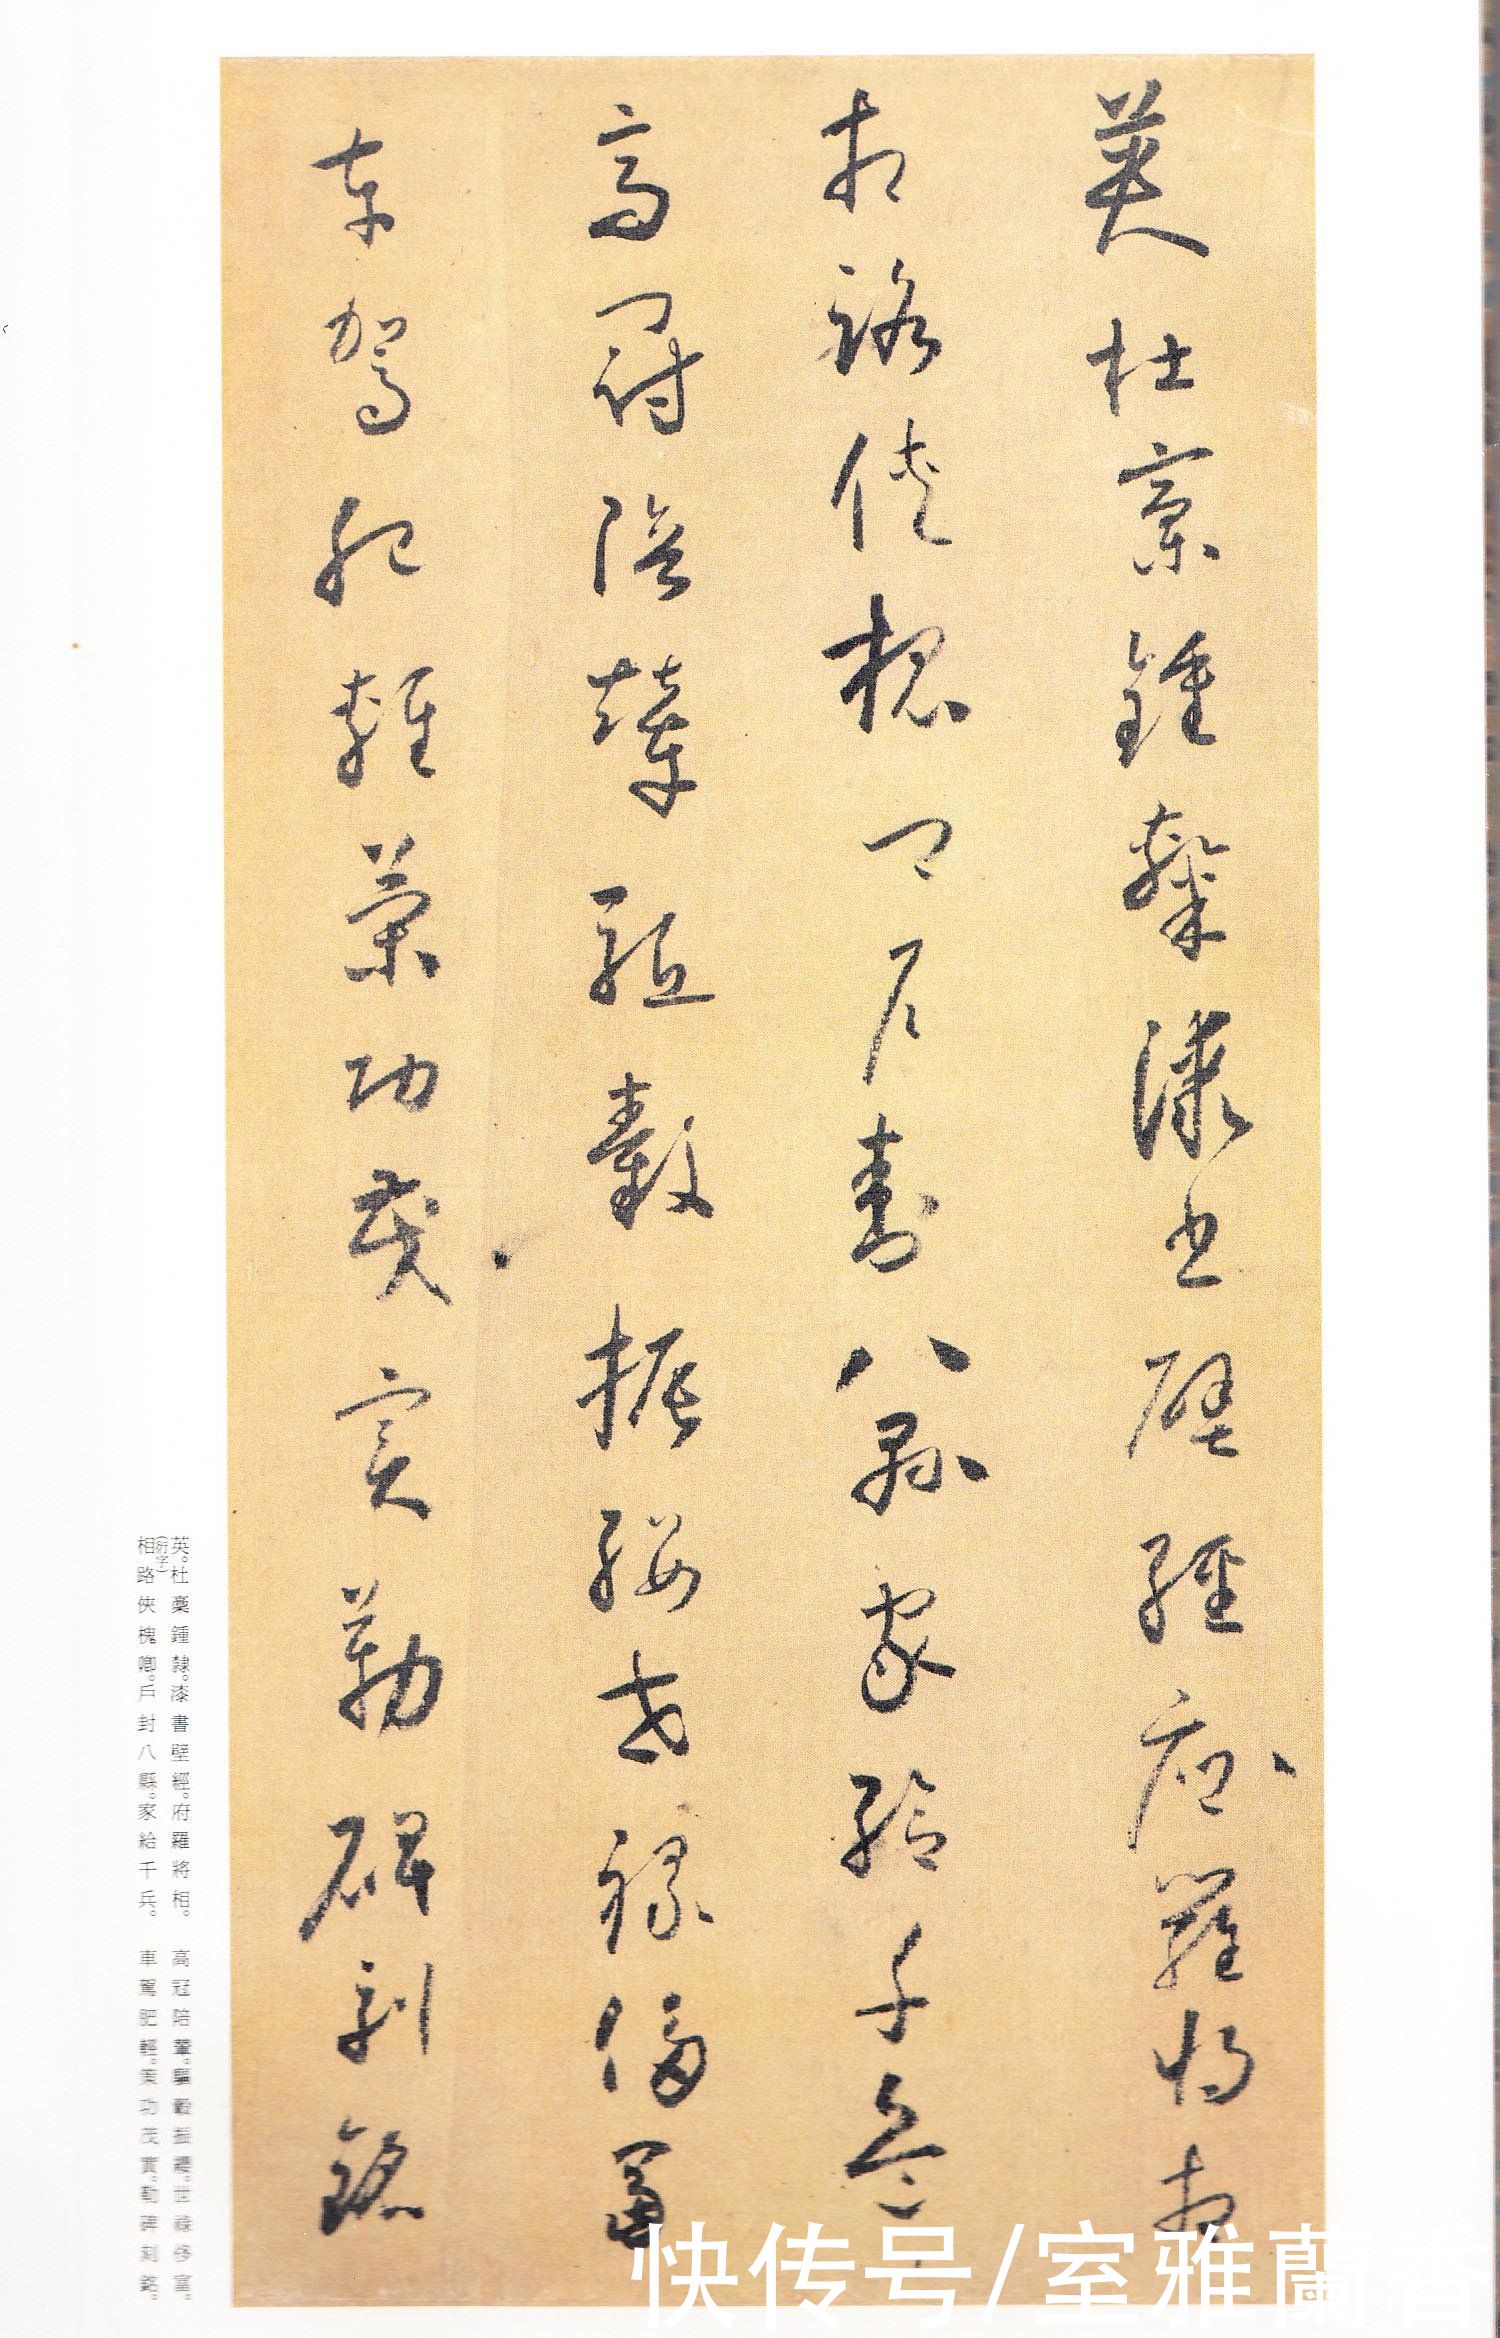 英杜稾鍾隸漆書壁經府羅將相
相路俠槐卿戶封八縣家給千兵
高冠陪輦驅轂振纓世祿侈富
車駕肥輕策功茂實勒碑刻銘
英。杜稾鍾隸。漆書壁經。府羅將相。 高冠陪輦。驅轂振纓。世祿侈富。
(衍字)
相路俠槐卿。戶封八縣。家給千兵。 車駕肥輕。策功茂實。勒碑刻銘。
快传号/室雅蘭香